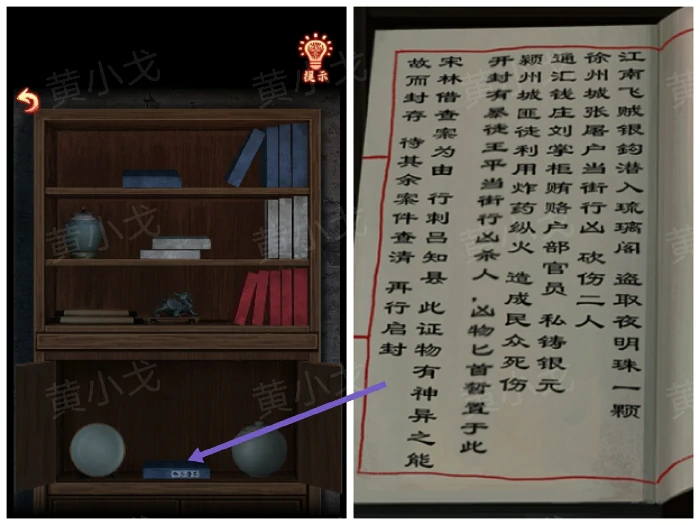 提示
江南飞贼银鈎潜入琉璃阁 盗取夜明珠一颗
徐州城张屠户当街行凶 砍伤二人
通汇钱庄刘掌柜贿赂户部官员 私铸银元
颍州城匪徒利用炸药纵火 造成民众死伤
开封有暴徒王平当街行凶杀人,凶物匕首暂置于此
宋林借查案为由 行刺吕知县 此证物有神异之能
故而封存 待其余案件查清 再行启封
黄小戈
黄小戈
黄小戈
黄小戈
黄小戈
黄小戈
黄小戈
黄小戈
黄小戈